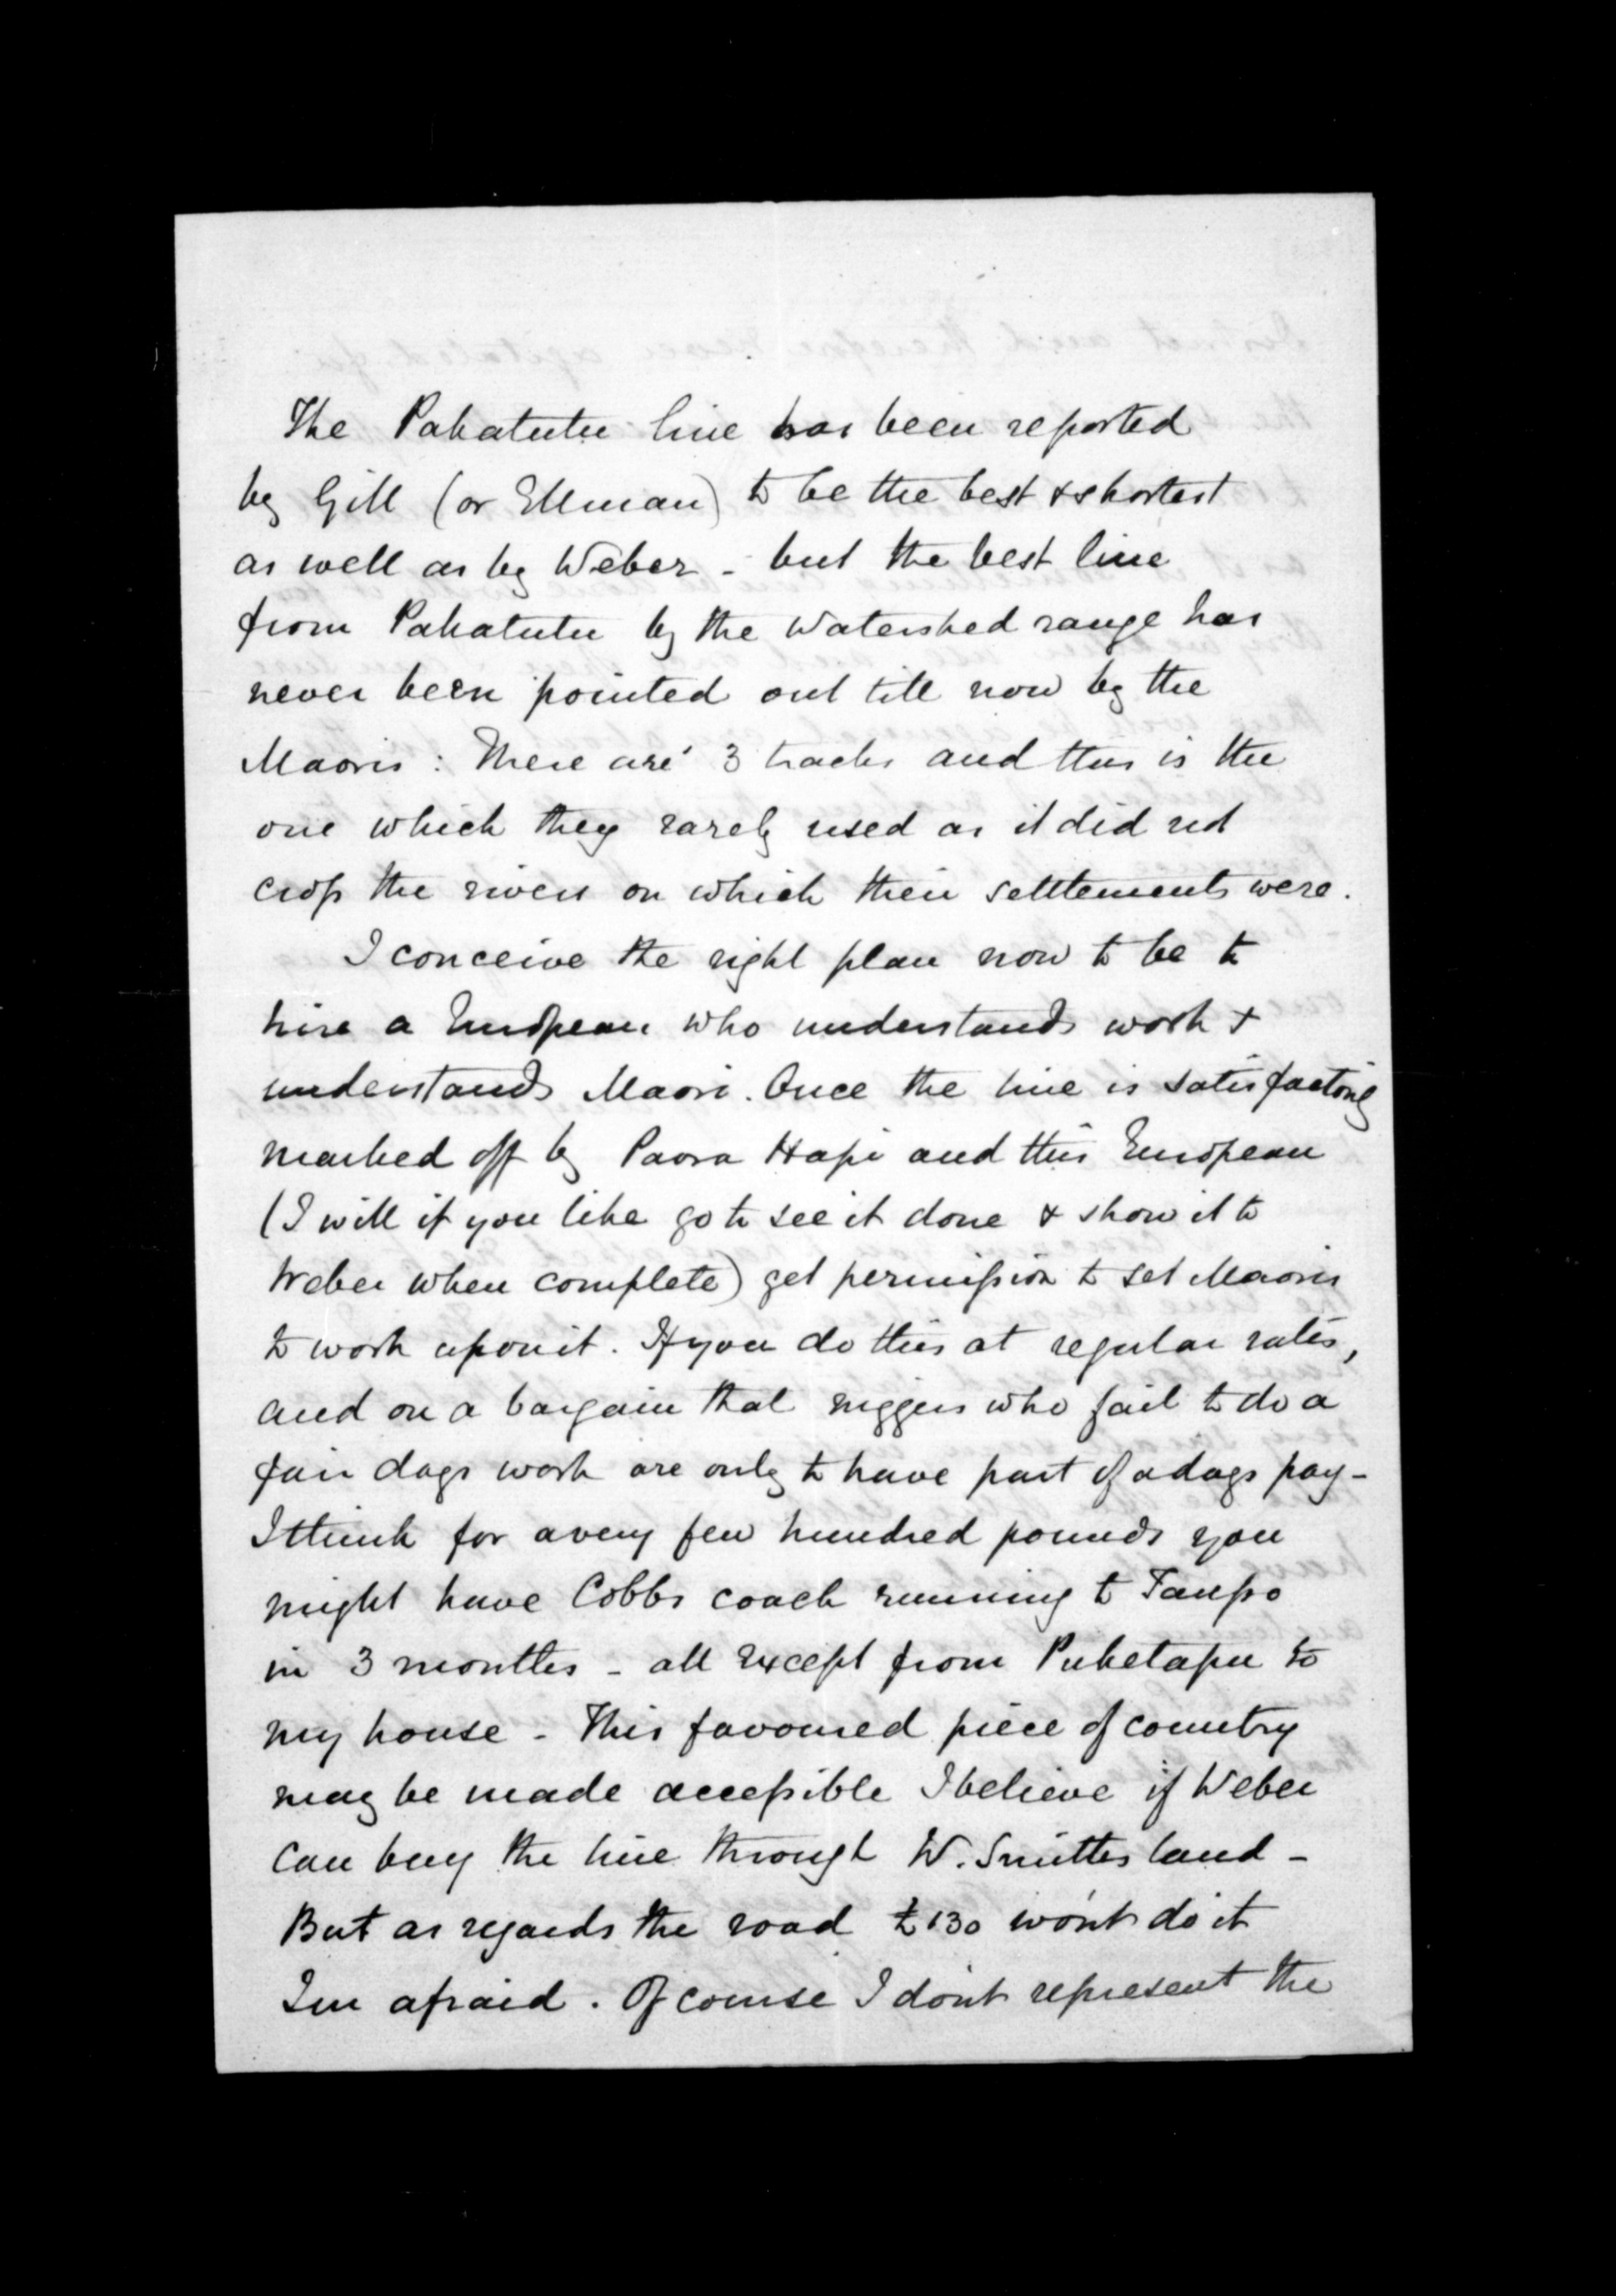 The Pakatutu line has been reported
by Gill (or Ellman) to be the best & shortest
as well as by Weber - but the best line
from Pakatutu by the Watershed range has
never been pointed out till now by the
Maoris: There are 3 tracks and this is the
one which they rarely used as it did not
cross the rivers on which their settlements were.
I conceive the right plan now to be to
hire a European who understands work &
understands Maori. Once the line is satisfactorily
marked off by Paora Hapi and this European
(I will if you like go to see it done & show it to
Weber when complete) get permission to set Maoris
to work upon it. If you do this at regular rates,
and on a bargain that niggers who fail to do a
fair days work are only to have part of a days pay -
I think for a very few hundred pounds you
might have Cobbs coach running to Taupo
in 3 months - all except from Puketapu to
my house - This favoured piece of country
may be made accessible I believe if Weber
can buy the line through W. Smiths land -
But as regards the road £130 won't do it
I'm afraid. Of course I don't represent the